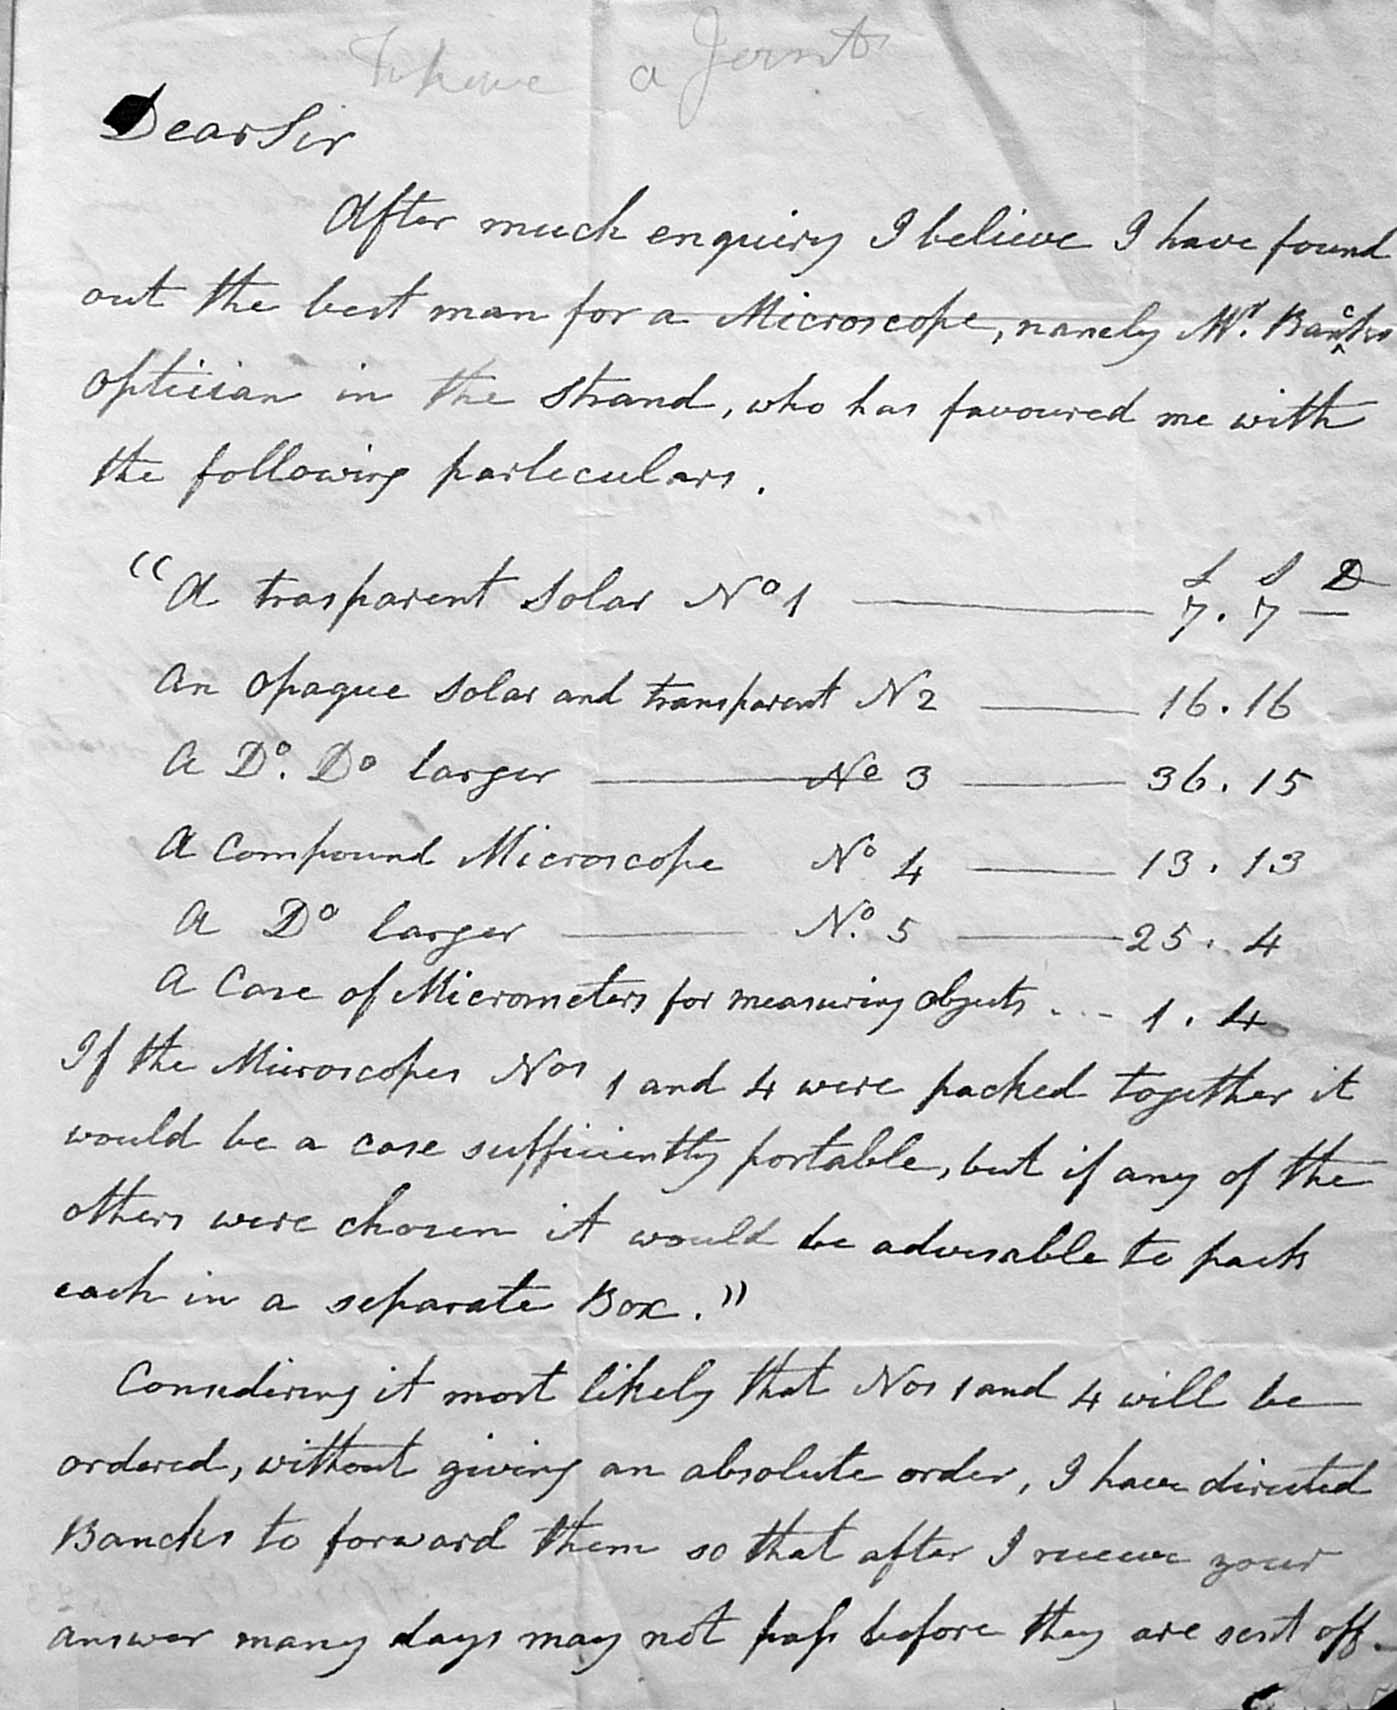 To have a
Dear Sir
After much enquiry I believe I have found
out the best man for a Microscope, namely Mr. Bancks
Optician in the Strand, who has favoured me with
the following particulars.
£ S D
"A trasparent Solar No 1 — 7. 7 —
An Opaque Solar and transparent N 2 — 16. 16
A Do. Do larger — No 3 — 36. 15
A Compound Microscope No 4 — 13. 13
A Do larger — No. 5 — 25. 4
A Case of Micrometers for measuring objects . . - - 1. 4
If the Microscopes Nos 1 and 4 were packed together it
would be a case sufficiently portable, but if any of the
others were chosen it would be adviseable to pack
each in a separate Box."
Considering it most likely that Nos 1 and 4 will be
ordered, without giving an absolute order, I have directed
Bancks to forward them so that after I receive your
answer many days may not pass before they are sent off.